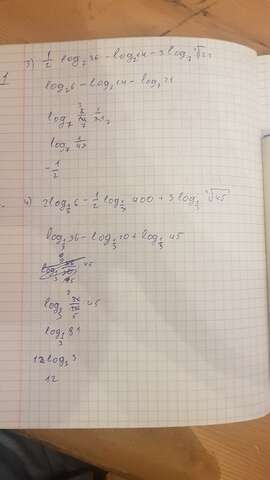 3) 1/2 log₇ 36 - log₇ 14 - 3 log₇ ³√21
log₇ 6 - log₇ 14 - log₇ 21
log₇
log₇ 1/49
- 1/2
1
4) 2 log_{1/3} 6 - 1/2 log_{1/3} 400 + 3 log_{1/3} ³√45
log_{1/3} 36 - log_{1/3} 20 + log_{1/3} 45
log_{1/3} 36/20 45
log_{1/3} 81
12 log_3 3
12